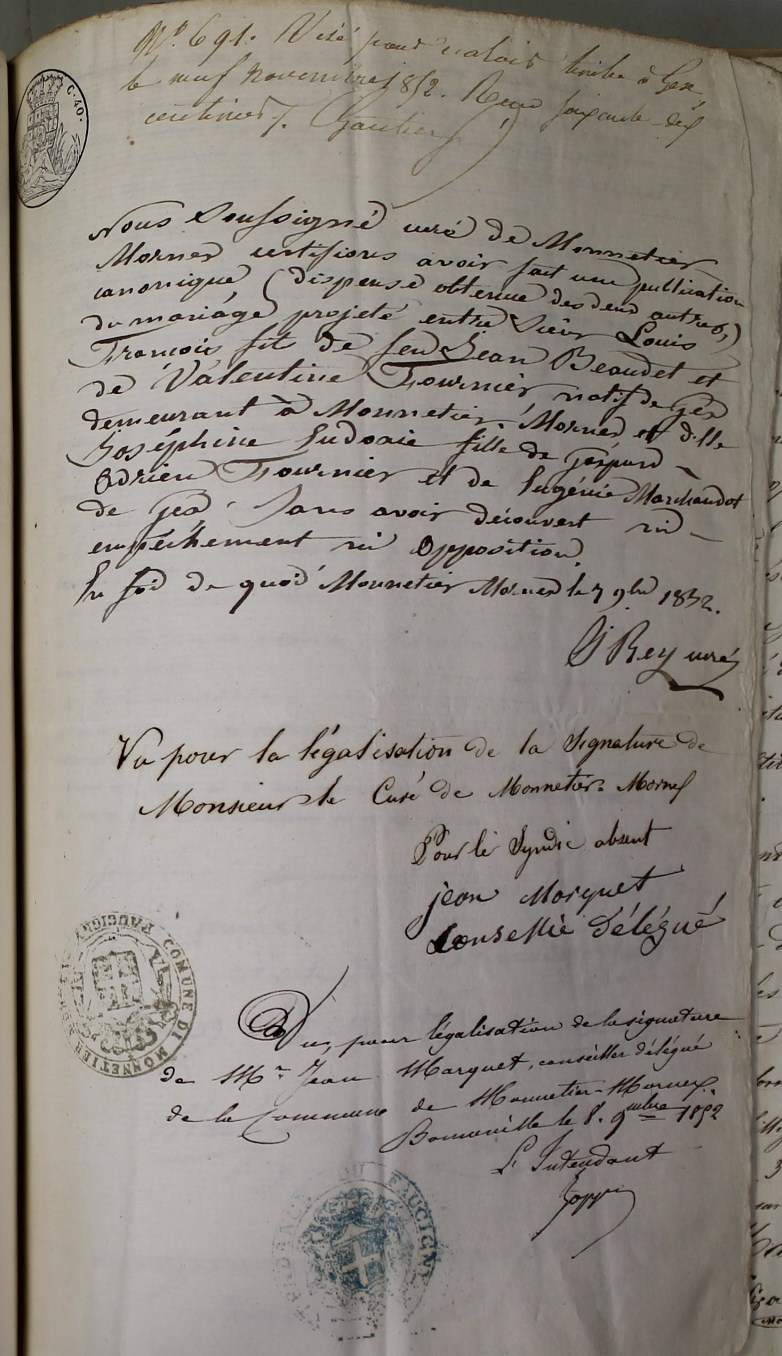 N.° 691. Visé pour valoir timbre à Gex,
le neuf novembre 1852. Reçu soixante-dix
centimes. Gautier
C. 40.
Nous Soussigné curé de Monnetier
Mornex certifions avoir fait une publication
canonique (dispense obtenue des deux autres,)
du mariage projeté entre Sieur Louis
François fils de feu Jean Beaudet et
de Valentine Fournier natif de Gex
demeurant à Monnetier-Mornex et dlle
Joséphine Ludovie fille de Gaspard
Adrien Fournier et de Eugénie Marchandot
de Gex. Sans avoir découvert ni
empêchement ni Opposition.
En foi de quoi Monnetier Mornex le 7 9bre 1852.
Rey curé
Vu pour la légalisation de la Signature de
Monsieur le Curé de Monnetier-Mornex
Pour le Syndic absent
jean Marquet
Conseillié délégué
COMUNE DI MONNETIER FAUCIGNY
Vu, pour légalisation de la signature
de Mr Jean Marquet, conseiller délégué
de la Commune de Monnetier-Mornex.
Bonneville le 8. 9mbre 1852
L'Intendant
FAUCIGNY